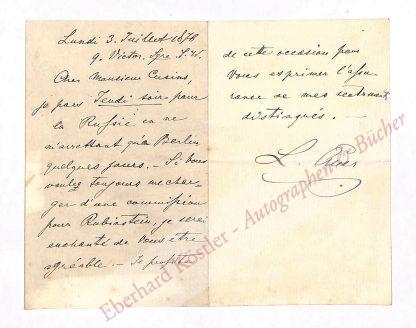 Lundi 3. Juillet 1876
9. Victor. Sqre. S. W.
Cher Monsieur Cusins,
je pars Jeudi soir pour
la Russie en ne
m'arrettant qu'à Berlin
quelques jours. - Si vous
voulez toujours me char-
ger d'une commission
pour Rubinstein, je serai
enchanté de vous être
agréable. - Je profite
de cette occasion pour
vous exprimer l'assu-
rance de mes sentiments
distingués. -
L.
Eberhard Köstler - Autographen & Bücher